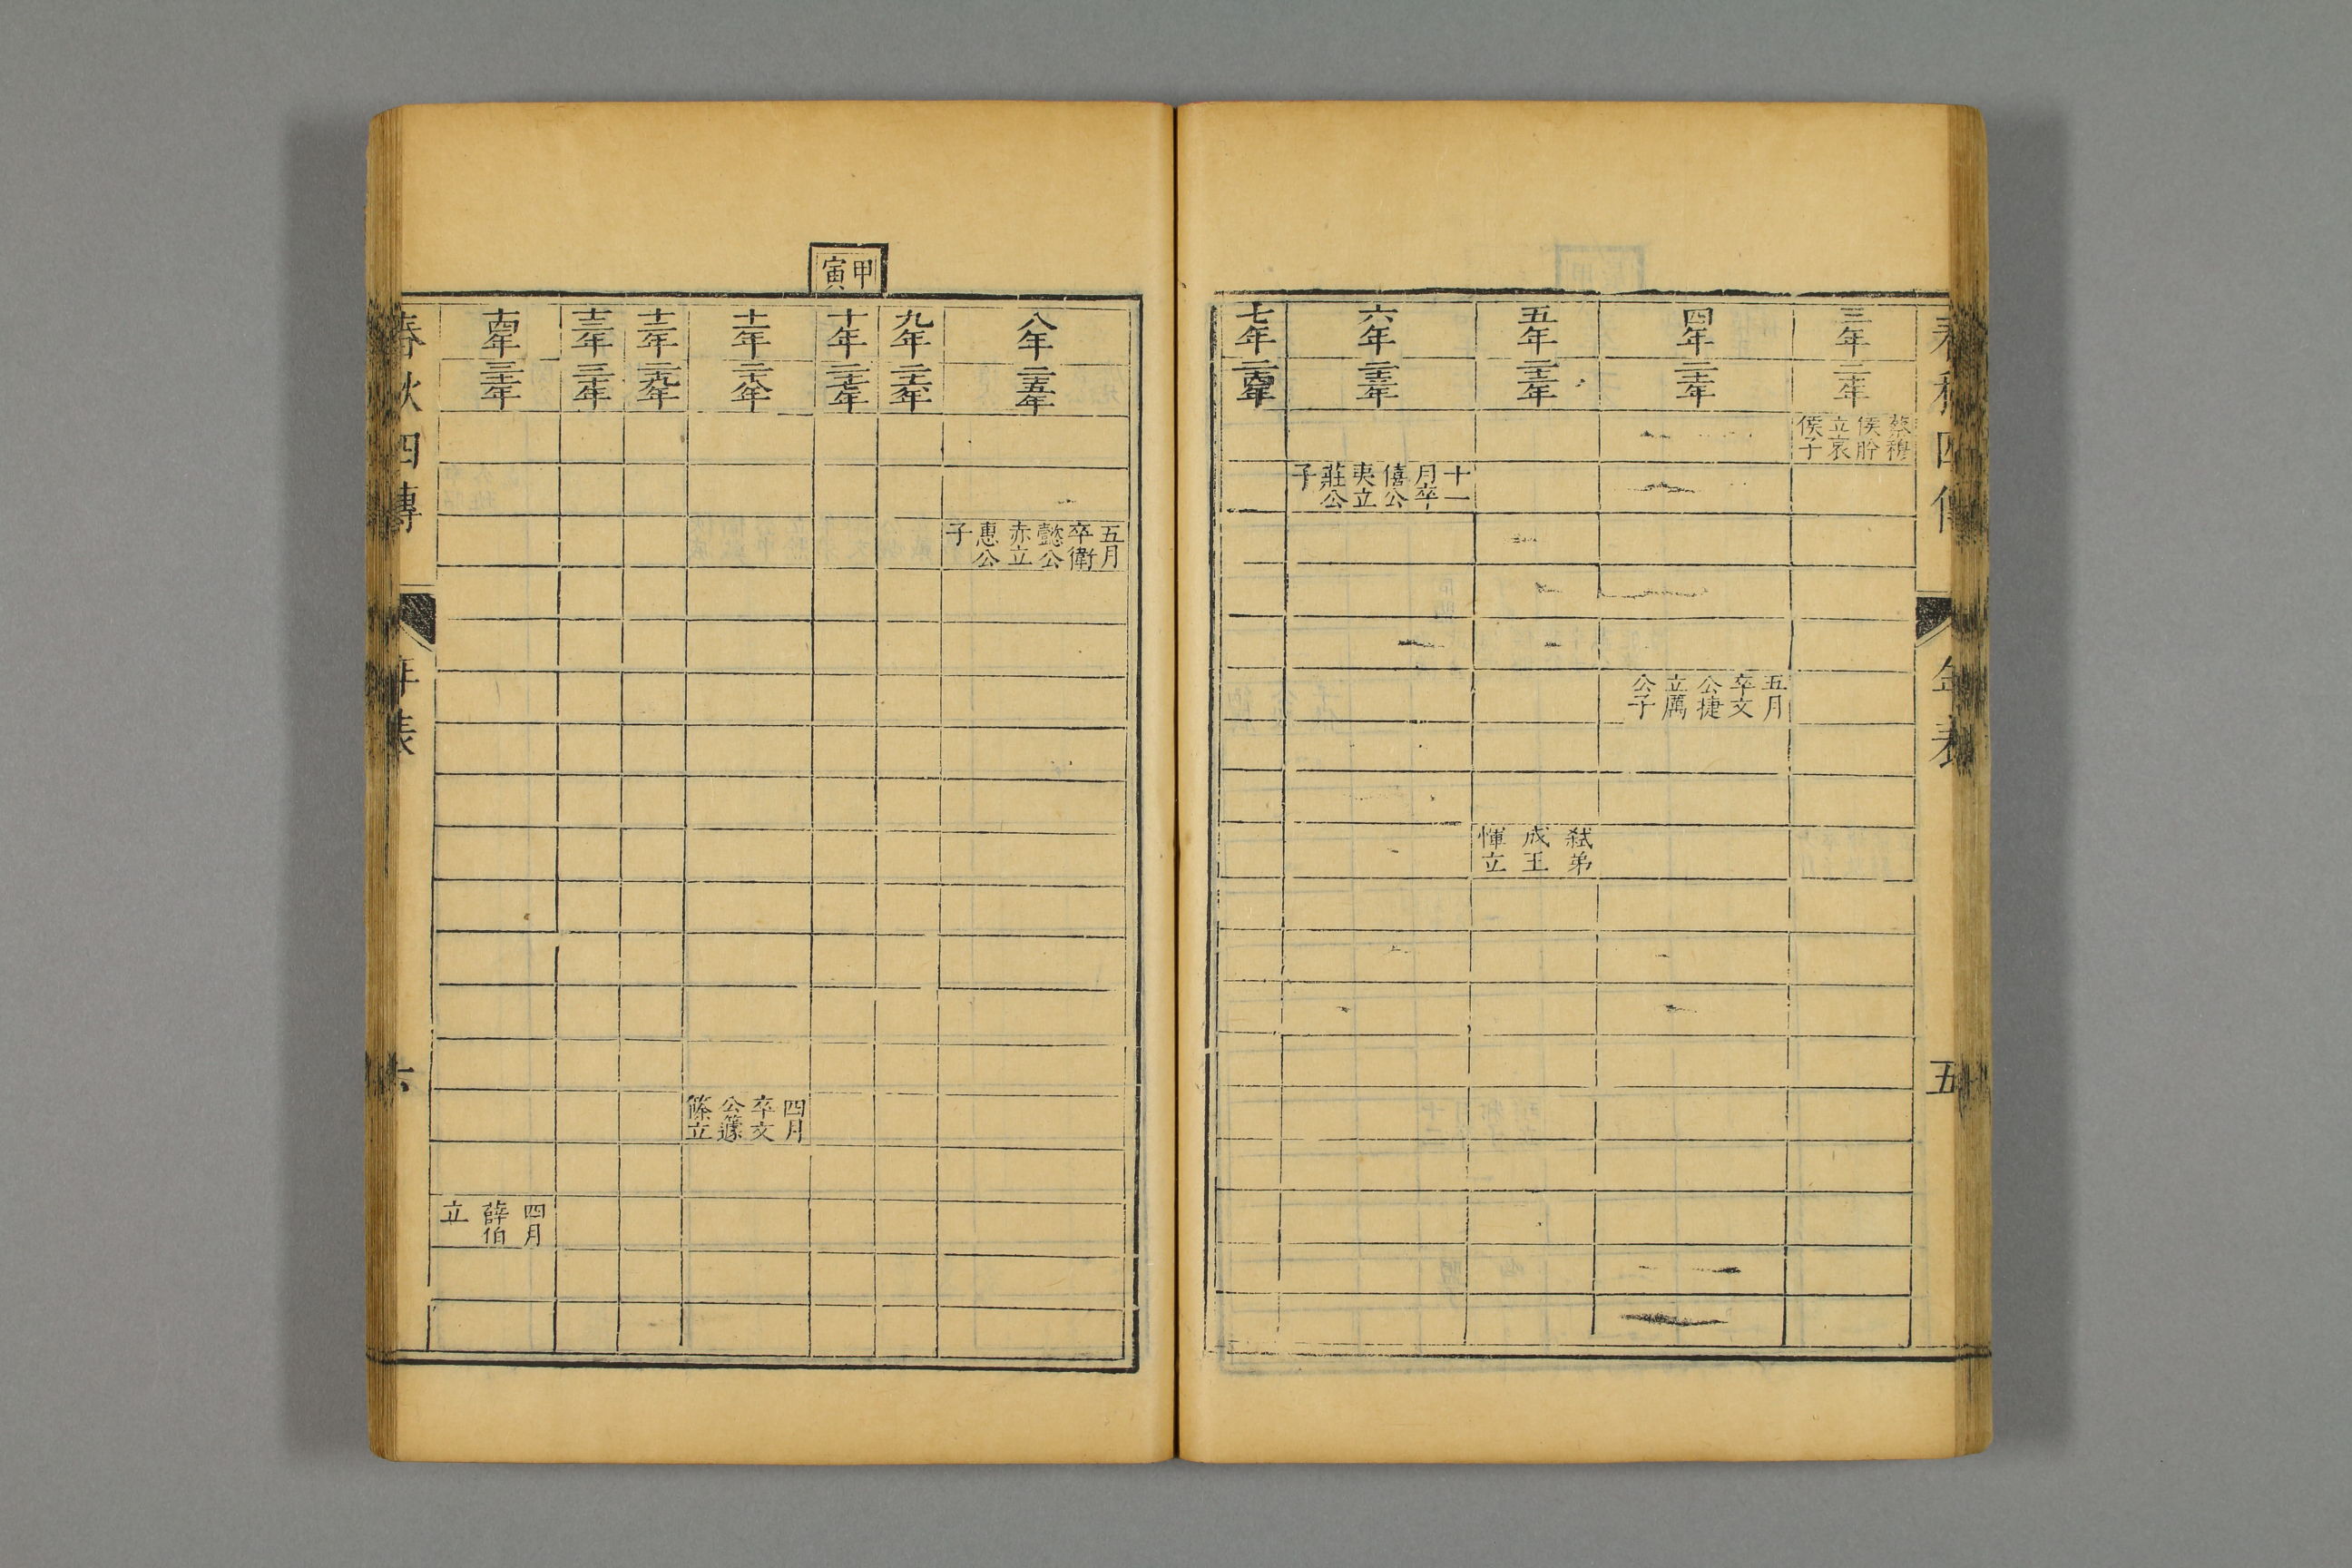 春秋四傳 年表 五
三年
二十年
蔡穆
侯肸
立哀
侯子
四年
二十一年
五月
卒文
公捷
立厲
公子
五年
二十二年
弒弟
成王
惲立
六年
二十三年
十一
月卒
僖公
夷立
莊公
子
七年
二十四年
八年
二十五年
五月
卒衛
懿公
赤立
惠公
子
九年
二十六年
甲寅
十年
二十七年
十一年
二十八年
四月
卒文
公籧
篨立
十二年
二十九年
十三年
三十年
十四年
三十一年
四月
薛伯
立
春秋四傳 年表 六